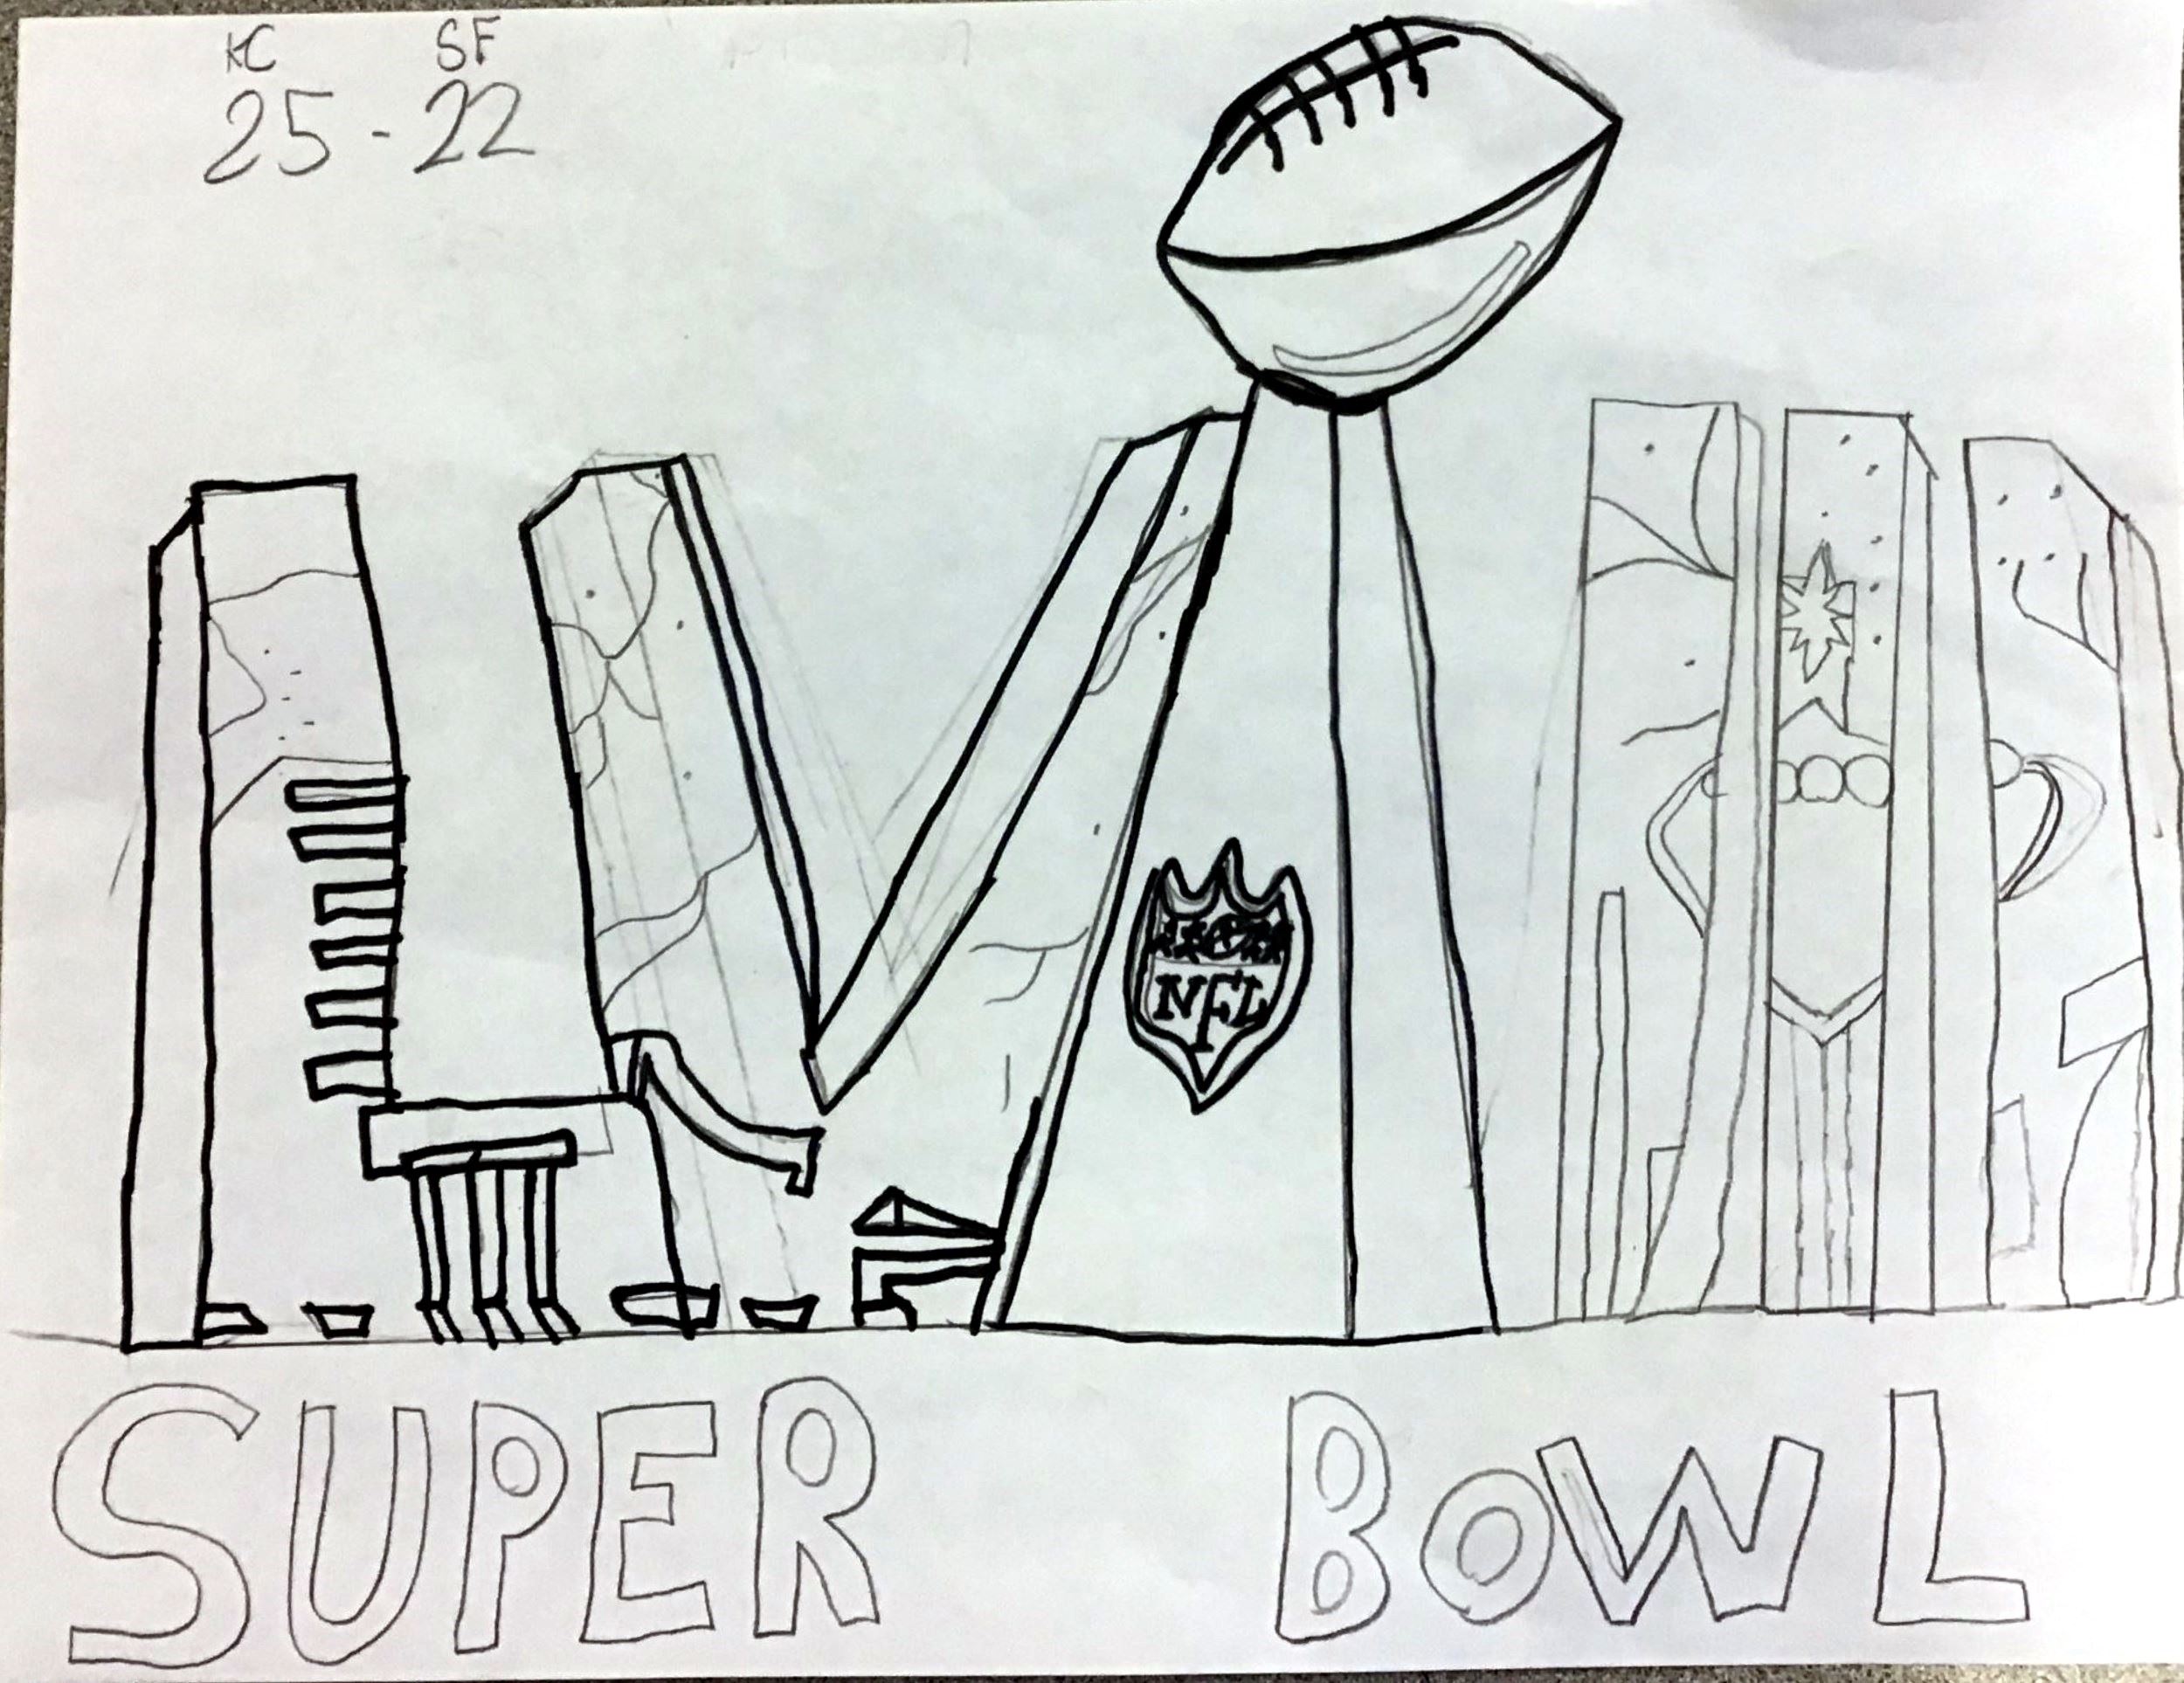 KC SF
25 - 22
LVIII
NFL
SUPER BOWL